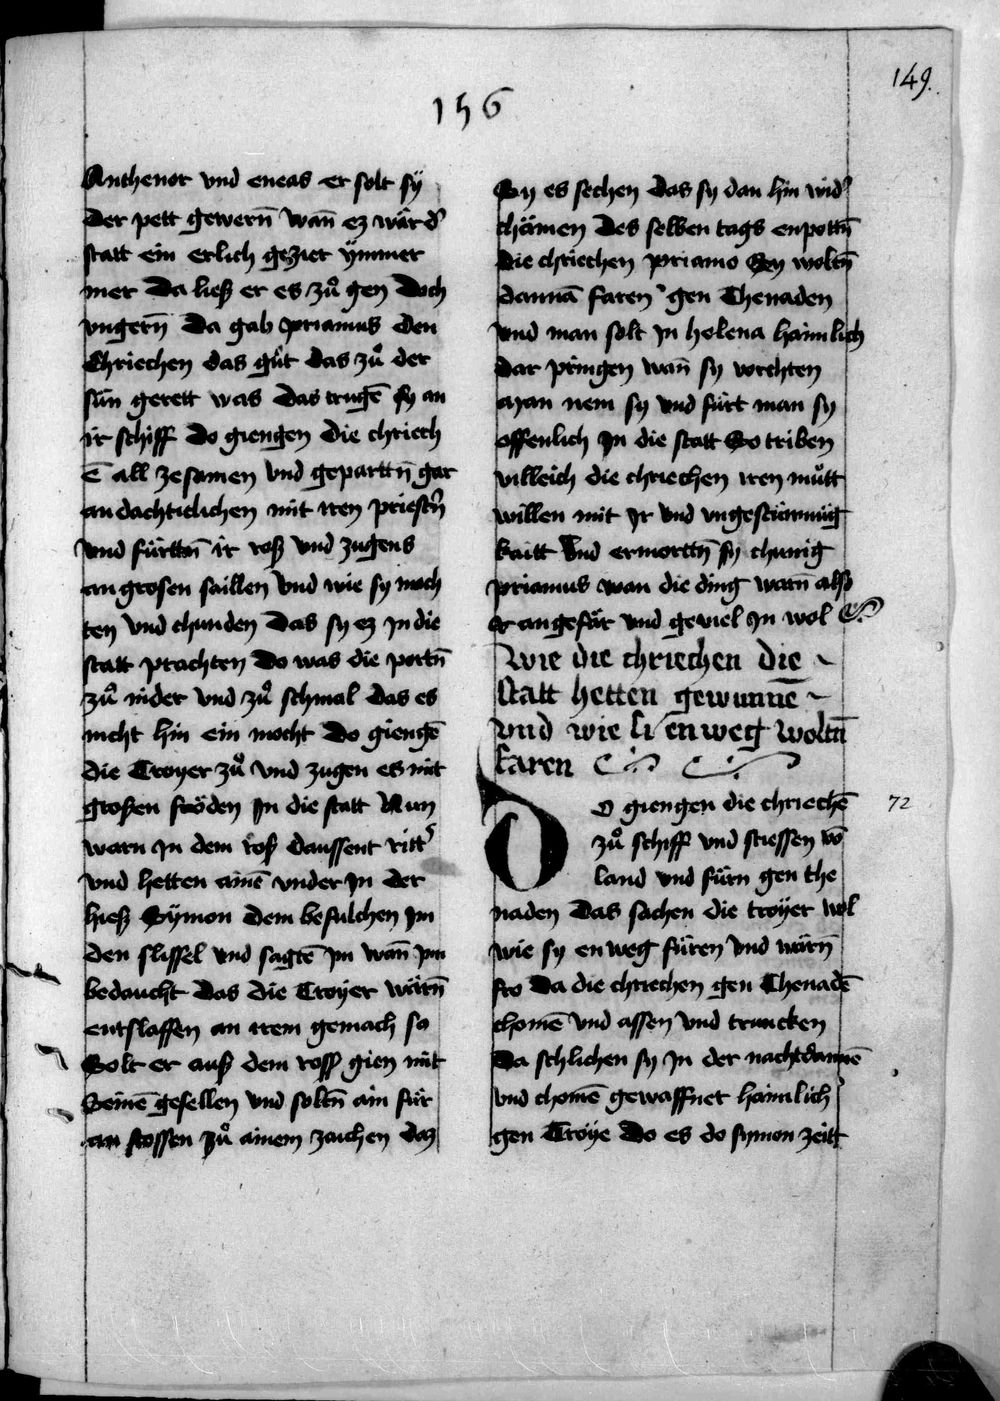 149.
156
Anthenor vnd eneas er solt sÿ
der pett gewern̄ wan̄ ez wär d'
statt ein erlich gezier ÿmmer
mer Da liess er es zuͦ gen Doch
vngern̄ Da gab Priamus den
Chriechen das guͤt das zuͦ der
sün gerett was Das trugē sy an
ir schiff Do giengen die chriech
ē all zesamen vnd geparttn̄ gar
andachticlichen mit iren priestn̄
vnd fürttn̄ ir ross vnd zugens
an grosen saillen vnd wie sy moch
ten vnd chunden Das sy ez Jn die
statt prachten Do was die portn̄
zuͦ nider vnd zuͦ schmal das es
nicht hin ein mocht Do giengē
die Troyer zuͦ vnd zugen es mit
grossen fröden Jn die statt Nun
warn Jn dem ross daussent ritt'
vnd hetten ainē vnder Jn der
hiess Sÿmon dem befulchen Jm
den slissel vnd sagtē Jm wan̄ Jm
bedaucht Das die Troÿer wärn̄
entslaffen an irem gemach so
Solt er auss dem ross gien mit
Seinē gesellen vnd soltn̄ ain für
an stossen zuͦ ainem zaichen daz
Sy es sechen das sy dan hin wid'
chämen Des selben tags enpottn̄
die chriechen priamo Sey woltn̄
dannā faren gen Thenaden
vnd man solt Jn helena haimlich
dar pringen wan̄ sy vorchten
man nem sy vnd fürt man sy
offenlich Jn die statt So triben
villeich die chriechen iren muͦtt
willen mit Jr vnd vngestürmig
kaitt Vnd ermorttn̄ sy chunig
priamus wan die ding warn also
er angefär vnd geviel Jn wol
Wie die chriechen die
statt hetten gewunnē
vnd wie si enweg woltn̄
faren
Do giengen die chriechē
zuͦ schiff vnd stiessen vō
land vnd fürn gen the
naden Das sachen die troÿer wol
wie sy enweg füren vnd wärn̄
fro Da die chriechen gen Thenadē
chomē vnd assen vnd truncken
Da schlichen sy Jn der nacht dannē
vnd chomē gewaffnet haimlich
gen Troÿe Do es do symon zeitt
72